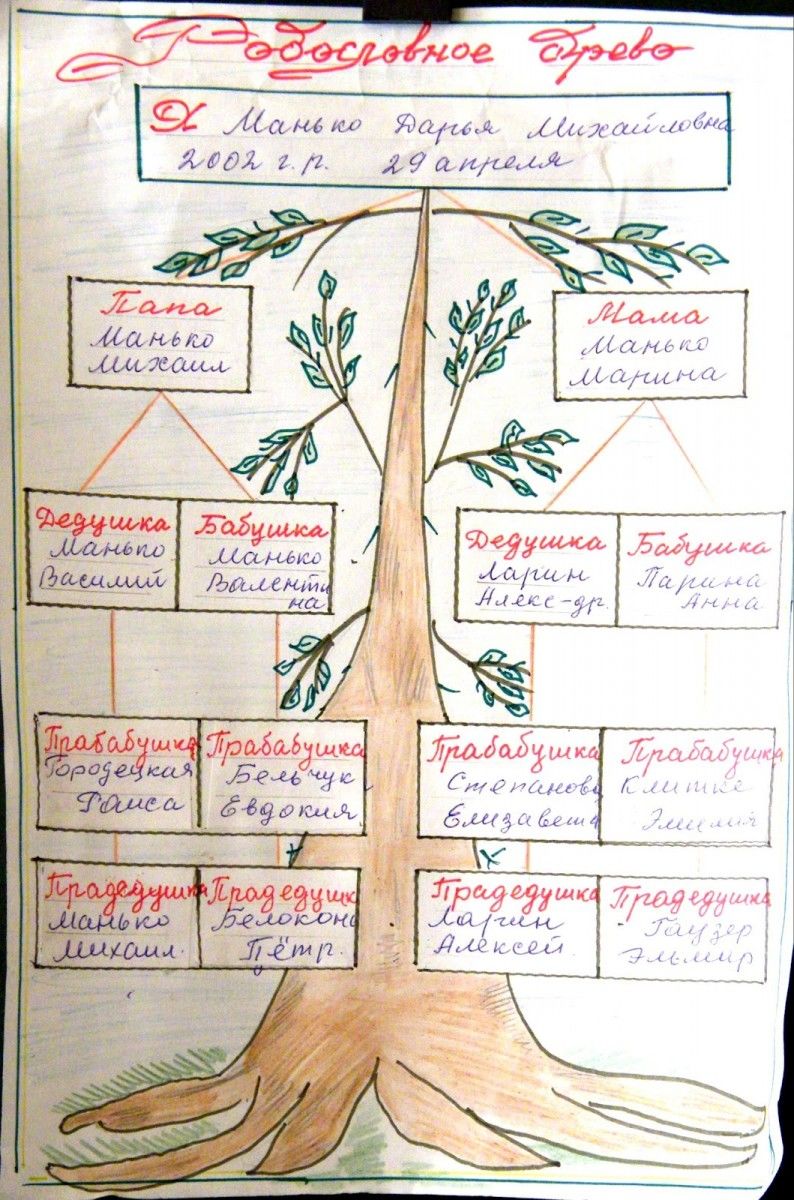 Родословное древо
Я Манько Дарья Михайловна
2002 г.р. 29 апреля
Папа
Манько
Михаил
Мама
Манько
Марина
Дедушка
Манько
Василий
Бабушка
Манько
Валенти
на
Дедушка
Ларин
Алекс-др.
Бабушка
Ларина
Анна
Прабабушка
Городецкая
Раиса
Прабабушка
Бельчук
Евдокия
Прабабушка
Степанова
Елизавета
Прабабушка
Клитке
Эмилия
Прадедушка
Манько
Михаил.
Прадедушк
Белоконь
Пётр.
Прадедушка
Ларин
Алексей.
Прадедушка
Гаузер
Эльмир